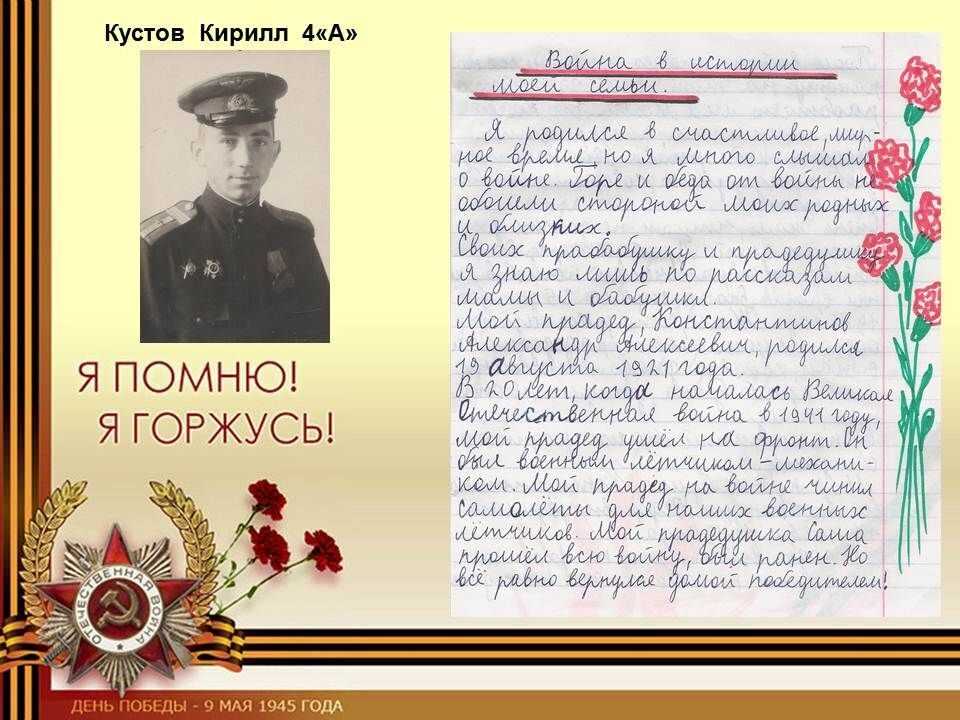 Кустов Кирилл 4«А»
Война в истории
моей семьи.
Я родился в счастливое, мир-
ное время, но я много слышал
о войне. Горе и беда от войны не
обошли стороной моих родных
и близких.
Своих прабабушку и прадедушку
я знаю лишь по рассказам
мамы и бабушки.
Мой прадед, Константинов
Александр Алексеевич, родился
19 августа 1921 года.
В 20 лет, когда началась Великая
Отечественная война в 1941 году,
мой прадед ушёл на фронт. Он
был военным лётчиком-механи-
ком. Мой прадед на войне чинил
самолёты для наших военных
лётчиков. Мой прадедушка Саша
прошёл всю войну, был ранен. Но
всё равно вернулся домой победителем!
Я ПОМНЮ!
Я ГОРЖУСЬ!
ОТЕЧЕСТВЕННАЯ ВОЙНА
ДЕНЬ ПОБЕДЫ - 9 МАЯ 1945 ГОДА